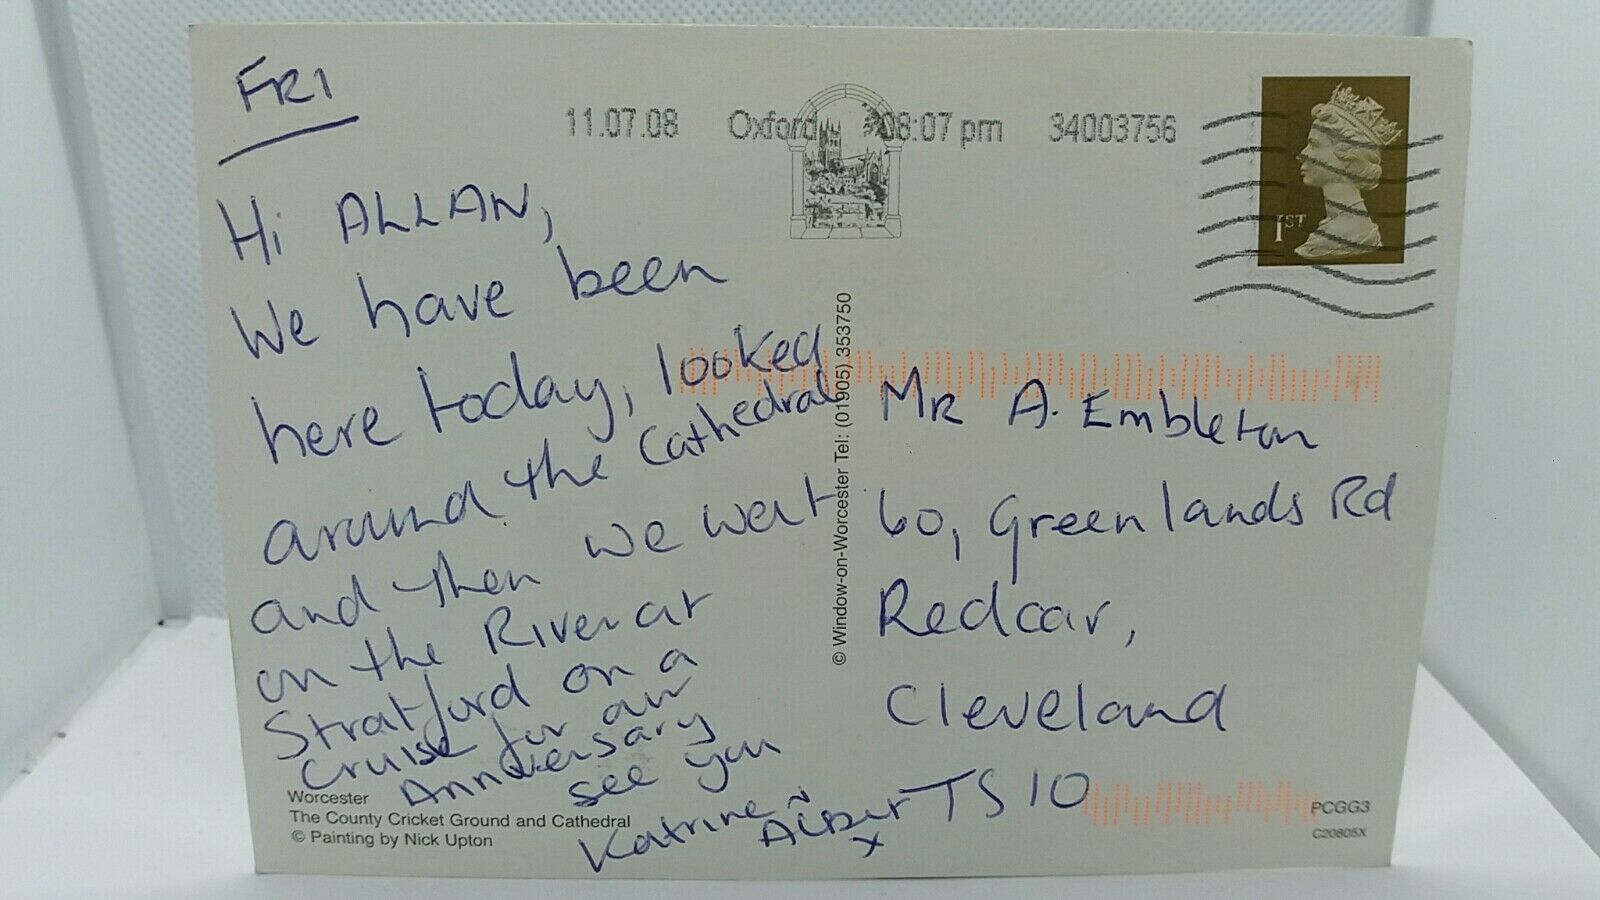 FRI
11.07.08 Oxford 08:07 pm 34003756
1ST
Hi ALLAN,
We have been
here today, looked
around the Cathedral
and then we went
on the River at
Stratford on a
cruise for our
Anniversary
see you
Katrine
Albert
x
© Window-on-Worcester Tel: (01905) 353750
MR A. Embleton
60, Greenlands Rd
Redcar,
Cleveland
TS 10
Worcester
The County Cricket Ground and Cathedral
© Painting by Nick Upton
PCGG3
C20805X